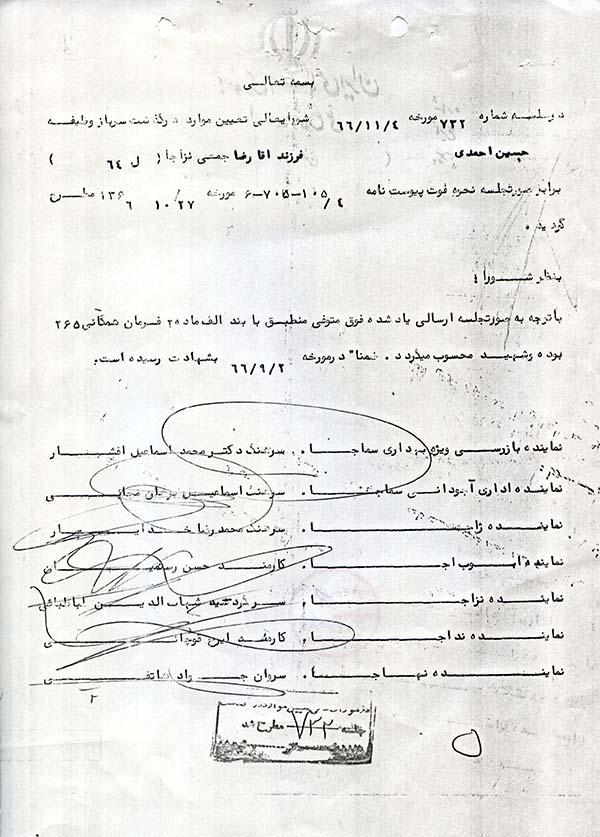 بسمه تعالی
در جلسه شماره ۷۲۲ مورخه ۶۶/۱۱/۴ شورایعالی تعیین موارد درگذشت سرباز وظیفه
حسین احمدی فرزند اقا رضا جمعی نزاجا ( ل ۶۴ )
برابر صورتجلسه نحوه فوت پیوست نامه ۱۰۵/۴-۷۰۵-۶ مورخه ۱۰/۲۷/۱۳۶۶ مطرح
گردید .
بنظر شورا :
با توجه به صورتجلسه ارسالی یاد شده فوق متوفی منطبق با بند الف ماده ۲ فرمان همگانی ۲۶۵
بوده و شهید محسوب میگردد . ضمنا" در مورخه ۶۶/۹/۲ بشهادت رسیده است.
نماینده بازرسی ویژه بهداری سماجا . سرهنگ دکتر محمد اسماعیل افشار
نماینده اداری آجودانی سماجا . سرهنگ اسماعیل
نماینده . سرهنگ محمد رضا
نماینده اجا . کارمند حسن
نماینده نزاجا . سید شهاب الدین
نماینده نداجا . کارمند
نماینده نهاجا . سروان جواد
جلسه ۷۲۲ مطرح شد